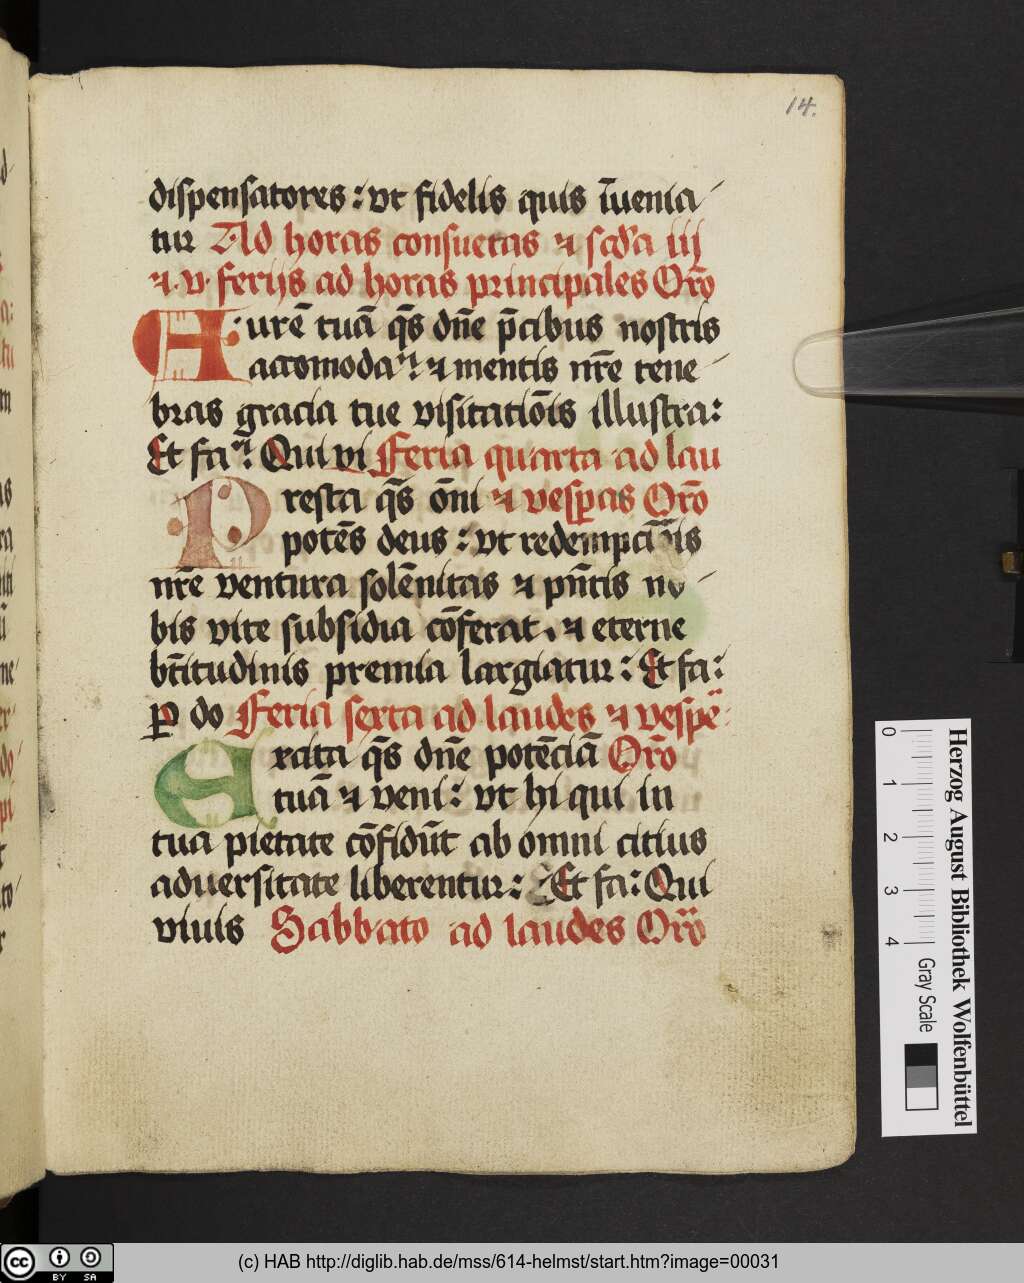 14.
dispensatores : vt fidelis quis īuenia
tur Ad horas consuetas ⁊ scd'a iij
⁊ · v · ferijs ad horas principales Orō
Aurē tuā q̄s dn̄e p̄cibus nostris
accomoda : ⁊ mentis nr̄e tene
bras gracia tue visitatiōis illustra :
Et fa : Qui vi Feria quarta ad lau
Presta q̄s ōni ⁊ vesꝑas Orō
potēs deus : vt redempciōis
nr̄e ventura solēnitas ⁊ pn̄tis no
bis vite subsidia cōferat . ⁊ eterne
bt̄itudinis premia largiatur : Et fa :
ꝑ do Feria sexta ad laudes ⁊ vespe
Excita q̄s dn̄e potēciā Orō
tuā ⁊ veni : vt hi qui in
tua pietate cōfidūt ab omni citius
aduersitate liberentur : Et fa : Qui
viuis Sabbato ad laudes Orō
Herzog August Bibliothek Wolfenbüttel
0 1 2 3 4 Gray Scale
cc BY SA
(c) HAB http://diglib.hab.de/mss/614-helmst/start.htm?image=00031